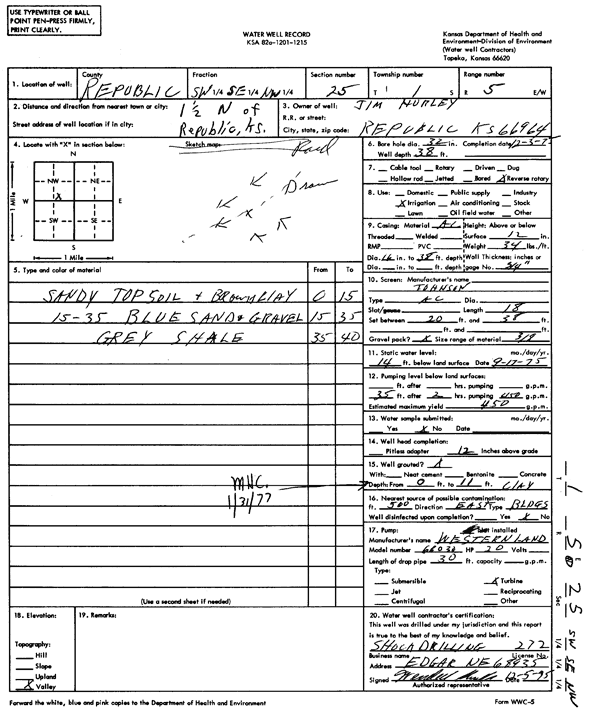 USE TYPEWRITER OR BALL
POINT PEN-PRESS FIRMLY,
PRINT CLEARLY.
WATER WELL RECORD
KSA 82a-1201-1215
Kansas Department of Health and
Environment-Division of Environment
(Water well Contractors)
Topeka, Kansas 66620
1. Location of well: County REPUBLIC Fraction SW 1/4 SE 1/4 NW 1/4 Section number 25 Township number T 1 S Range number R 5 E/W
2. Distance and direction from nearest town or city: 1½ N of
Street address of well location if in city: Republic, Ks.
3. Owner of well: JIM HURLEY
R.R. or street:
City, state, zip code: REPUBLIC KS 66964
4. Locate with "X" in section below:
Sketch map:
N
NW NE
X
W E
SW SE
S
1 Mile
1 Mile
Road
Draw
X
6. Bore hole dia. in. Completion date
Well depth 38 ft.
7. Cable tool Rotary Driven Dug
Hollow rod Jetted Bored X Reverse rotary
8. Use: Domestic Public supply Industry
X Irrigation Air conditioning Stock
Lawn Oil field water Other
9. Casing: Material AC Height: Above or below
Threaded Welded Surface 12 in.
RMP PVC Weight 34 lbs./ft.
Dia. 16 in. to 38 ft. depth Wall Thickness: inches or
Dia. in. to ft. depth gage No.
10. Screen: Manufacturer's name
JOHNSON
Type AC Dia.
Slot/gauze Length 18
Set between 20 ft. and 38 ft.
ft. and ft.
Gravel pack? X Size range of material 3/8
11. Static water level: mo./day/yr.
14 ft. below land surface Date 9-17-75
12. Pumping level below land surfaces:
ft. after hrs. pumping g.p.m.
35 ft. after 2 hrs. pumping 450 g.p.m.
Estimated maximum yield 450 g.p.m.
13. Water sample submitted: mo./day/yr.
Yes X No Date
14. Well head completion:
Pitless adapter 12 Inches above grade
15. Well grouted? X
With: Neat cement Bentonite Concrete
Depth: From 0 ft. to 11 ft. CLAY
16. Nearest source of possible contamination:
ft. 500 Direction EAST Type BLDGS
Well disinfected upon completion? Yes X No
17. Pump: Not installed
Manufacturer's name WESTERN LAND
Model number HP 20 Volts
Length of drop pipe 30 ft. capacity g.p.m.
Type:
Submersible X Turbine
Jet Reciprocating
Centrifugal Other
5. Type and color of material From To
SANDY TOP SOIL & BROWN CLAY 0 15
15-35 BLUE SAND & GRAVEL 15 35
GREY SHALE 35 40
MHC.
1/31/77
(Use a second sheet if needed)
18. Elevation:
Topography:
Hill
Slope
Upland
X Valley
19. Remarks:
20. Water well contractor's certification:
This well was drilled under my jurisdiction and this report
is true to the best of my knowledge and belief.
SHOCK DRILLING 272
Business name License No.
Address EDGAR NE 68935
Signed Date
Authorized representative
Forward the white, blue and pink copies to the Department of Health and Environment
Form WWC-5
T R Sec 1/4 1/4 1/4
1 5 25 SW SE NW